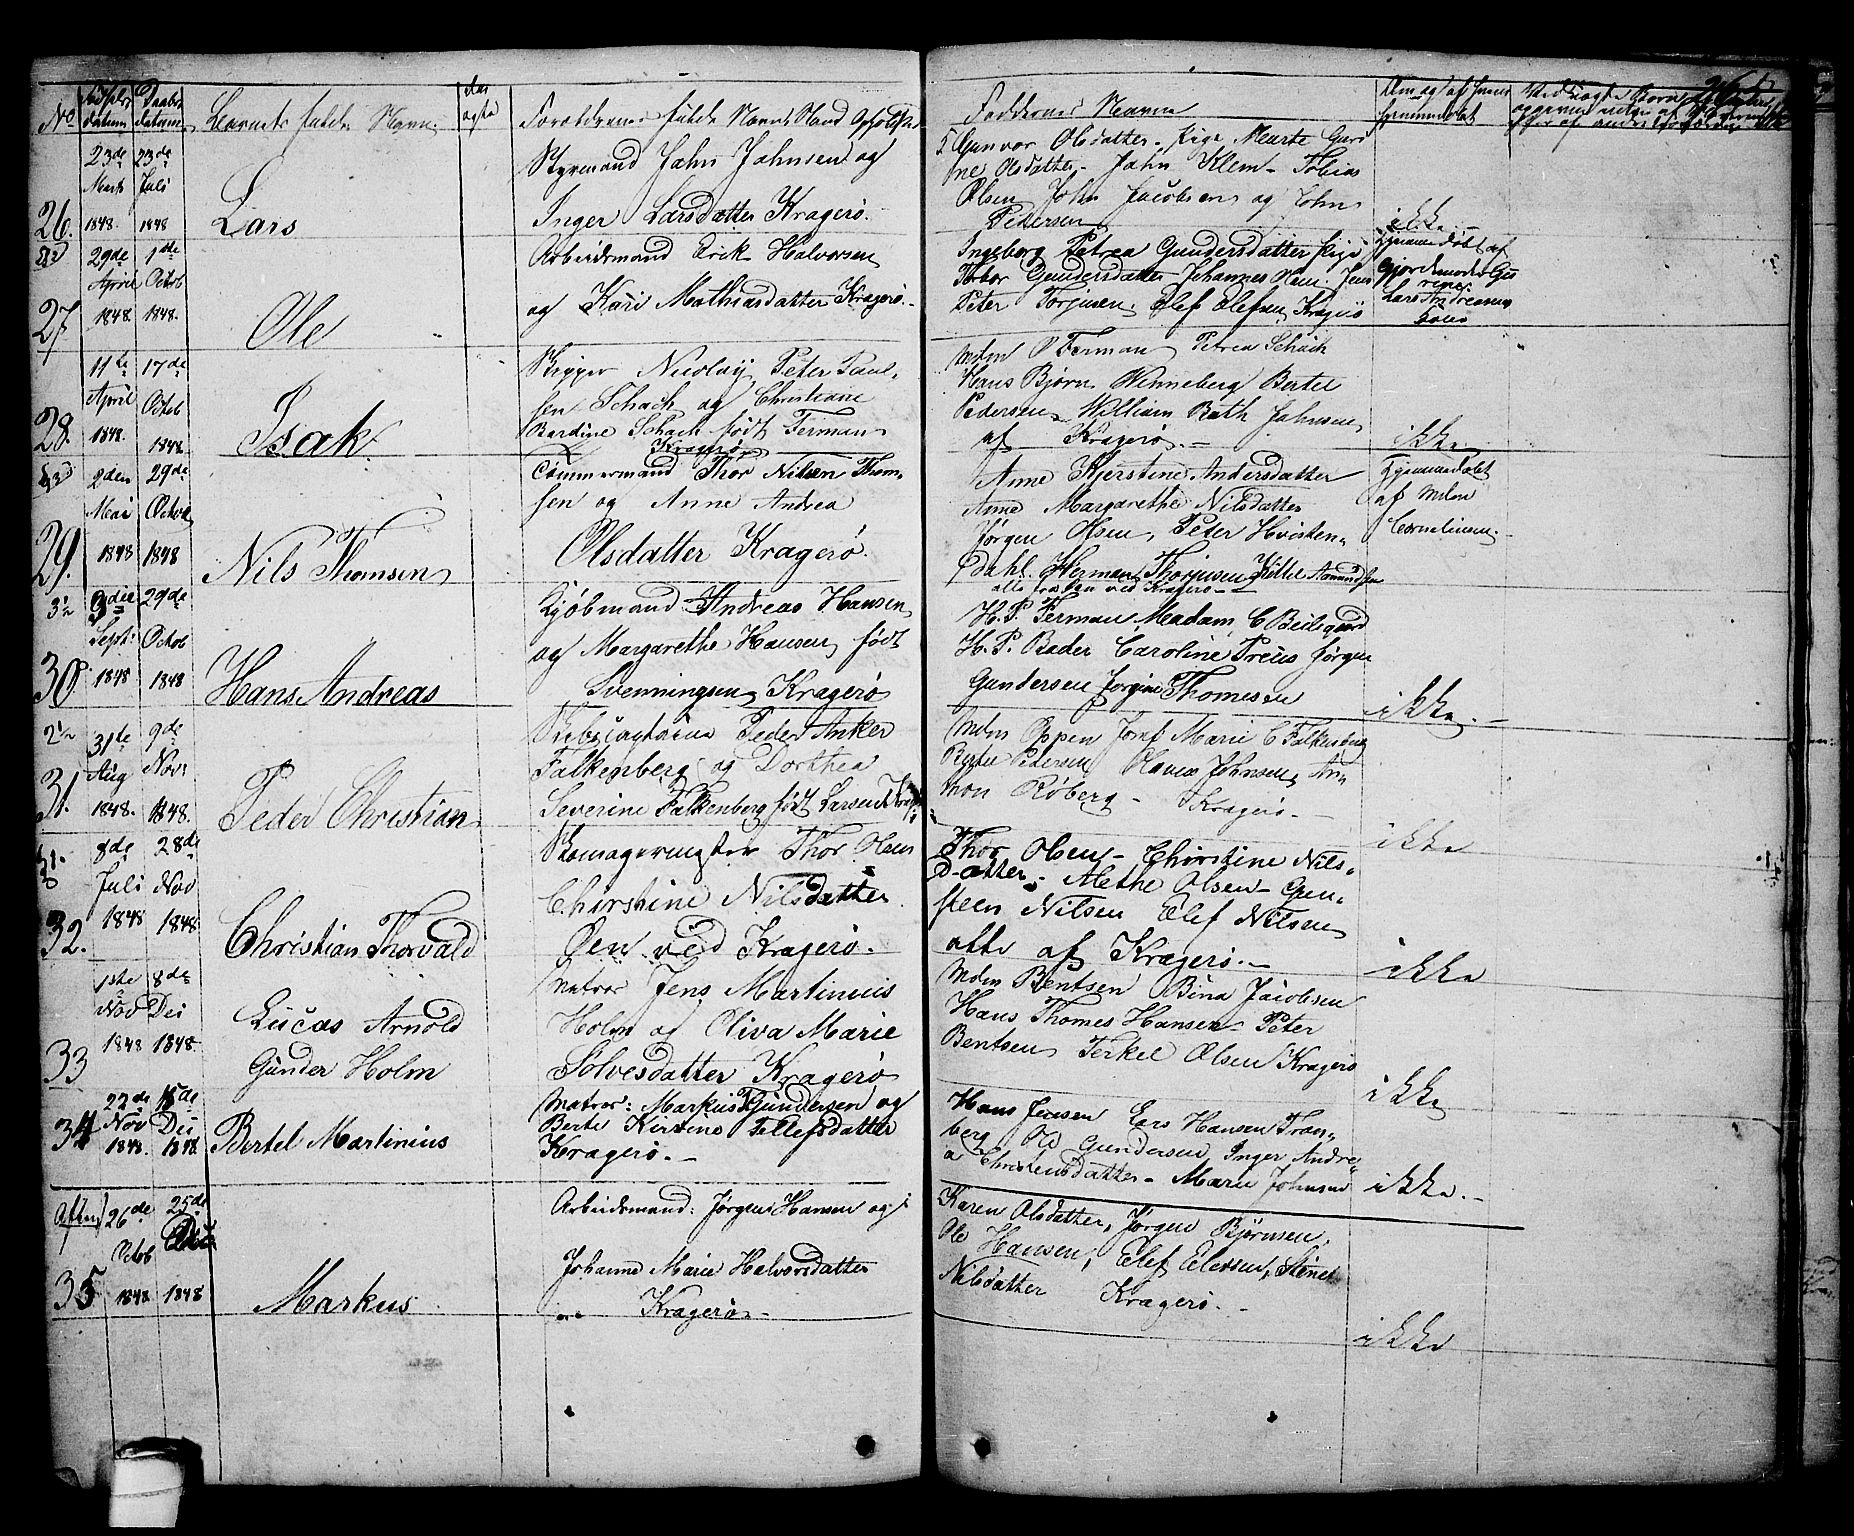 No
datum
datum
Barnets fulde Navn
Foreldrenes fulde Navne Stand
Faddernes Navne
23de
23de
Marts
Juli
26.
1848.
1848
Lars
Styrmand Jahn Jahnsen og
Inger Larsdatter Kragerø.
Gunvor Olsdatter. Pige Marte Guri
ne Olsdatter. Jahn Klem - Tobias
Olsen John Jacobsen og John
Pedersen
ikke
29de
1de
April
Octob
27
1848.
1848.
Ole
Arbeidsmand Erik Halvorsen
og Kari Mathiasdatter Kragerø.
Ingeborg Petrea Gundersdatter Pige
Torbor Gundersdatter Johannes Jens
Peter Torjusen, Elef Elefsen Kragerø
Hjemmedøbt af
Gjordemoder
Lars Andreasens
11te
17de
April
Octob
28.
1848.
1848
Isak
Skipper Nicolay Peter Paul-
sen Schach og Christiane
Bardine Schach født Ferman
Kragerø
Mdm Ferman, Petrea Schach
Hans Bjørn Winneberg Bertel
Pedersen William Bath Jahnsen,
af Kragerø. -
ikke
2den
29de
Mai
Octob
29.
1848
1848
Nils Thomsen
Tømmermand Thor Nilsen Thom-
sen og Anne Andrea
Olsdatter Kragerø.
Anne Kjerstine Andersdatter
Anne Margarethe Nilsdatter
Jørgen Olsen, Peter Hvisten-
dahl. Herman Thorjusen, Kittel Aamundsen
alle fra Øen ved Kragerø -
Hjemmedøbt
af Mdm
Corneliusen. -
29de
Sept.
Octob
30
1848
1848
Hans Andreas
Kjøbmand Andreas Hansen
og Margarethe Hansen født
Svenningsen Kragerø
H. P. Ferman, Madam, C Beilegaard
H. P. Bader Caroline Preus Jørgen
Gundersen Jorgine Thomesen
ikke. -
31te
9de
Aug
Nov.
31.
1848.
1848.
Peder Christian
Skibscaptain Peder Anker
Falkenberg og Dorthea
Severine Falkenberg født Larsen Krag.
Mdm Oppen Jomf Marie C Falkenberg
Bertel Pedersen Johnsen, An-
thon Røberg - Kragerø. -
ikke
8de
28de
Juli
Nov
32.
1848
1848
Christian Thorvald
Skomagermester Thor Olsen
Chirstine Nilsdatter
Øen ved Kragerø.
Thor Olsen - Chirstine Nils-
datter - Alethe Olsen - Gun-
steen Nilsen Elef Nilsen
alle af Kragerø. -
ikke
1ste
8de
Nov
Dec
33
1848
1848.
Lucas Arnold
Gunder Holm
Matros Jens Martinius
Holm og Oliva Marie
Solvesdatter Kragerø
Mdm Bentsen Bina Jacobsen
Hans Thomes Hansen - Peter
Bentsen Terkel Olsen Kragerø
ikke
22de
15de
Nov
Dec
34
1848.
1848
Bertel Martinius
Matros: Markus Gundersen og
Berte Kirstine Tellefsdatter
Kragerø. -
Hans Jensen Lars Hansen Tran-
berg Ole Gundersen Inger Andre-
a Christensdatter - Maria Johnsen
ikke. -
26de
25de
Octob
35
1848
1848
Markus
Arbeidsmand: Jørgen Hansen og
Johanne Marie Halvorsdatter
Kragerø -
Karen Olsdatter, Jørgen Bjørnsen,
Ole Hansen, Elef Elefsen, Stine
Nilsdatter Kragerø. -
ikke